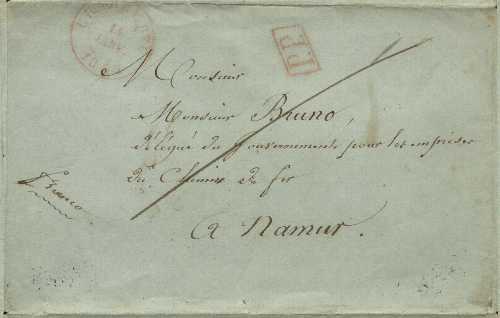 14
JANV.
P.P.
Monsieur
Monsieur Bruno,
délégué du Gouvernement pour les emprises
du Chemin de fer
Franco
a Namur.